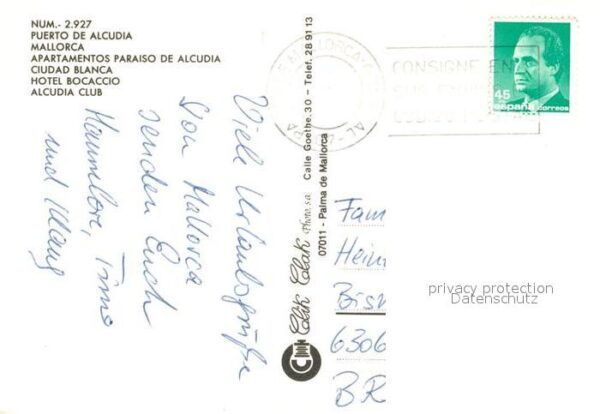 NUM.- 2.927
PUERTO DE ALCUDIA
MALLORCA
APARTAMENTOS PARAISO DE ALCUDIA
CIUDAD BLANCA
HOTEL BOCACCIO
ALCUDIA CLUB
Viele Urlaubsgrüße
Von Mallorca
senden Euch
Hannelore, Timo
und Klaus
Clik Clak Photo, s.a. Calle Goethe, 30 – Telef. 28 91 13
07011 - Palma de Mallorca
MALLORCA
CONSIGNE EN
SUS
45
españa correos
Fam
Hein
Bism
6306
BR
privacy protection
Datenschutz